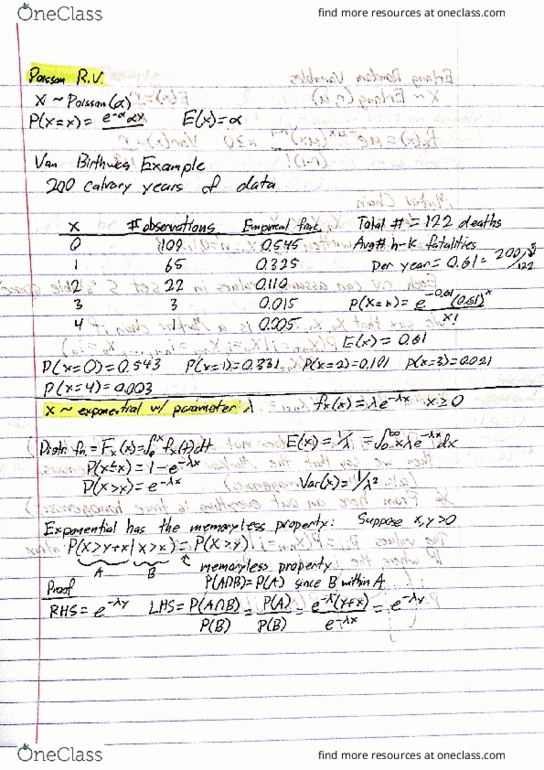 OneClass
find more resources at oneclass.com
Poisson R.V.
X ~ Poisson(α)
P(X=x) = e^-α α^x    E(x)=α
Van Birthwes Example
200 calvary years of data
X    # observations    Empireal frac.    Total # = 122 deaths
0    109    0.545    Avg # h-k fatalities
1    65    0.325    per year = 0.61 = 200/122
2    22    0.110
3    3    0.015    P(X=x) = e^-0.61 (0.61)^x / x!
4    1    0.005    E(x) = 0.61
P(x=0)=0.543    P(x=1)=0.331    P(x=2)=0.101    P(x=3)=0.021
P(x=4)=0.003
X ~ exponential w/ parameter λ    fx(x) = λe^-λx    x≥0
Distr. fn. = Fx(x) = ∫0^x fx(t)dt    E(x) = 1/λ = ∫0^∞ xλe^-λx dx
P(X≤x) = 1 - e^-λx
P(X>x) = e^-λx    Var(x) = 1/λ²
Exponential has the memoryless property: Suppose x,y>0
P(X>y+x | X>x) = P(X>y)
A    B    memoryless property
Proof    P(A∩B) = P(A) since B within A
RHS = e^-λy    LHS = P(A∩B)/P(B) = P(A)/P(B) = e^-λ(y+x)/e^-λx = e^-λy
OneClass
find more resources at oneclass.com